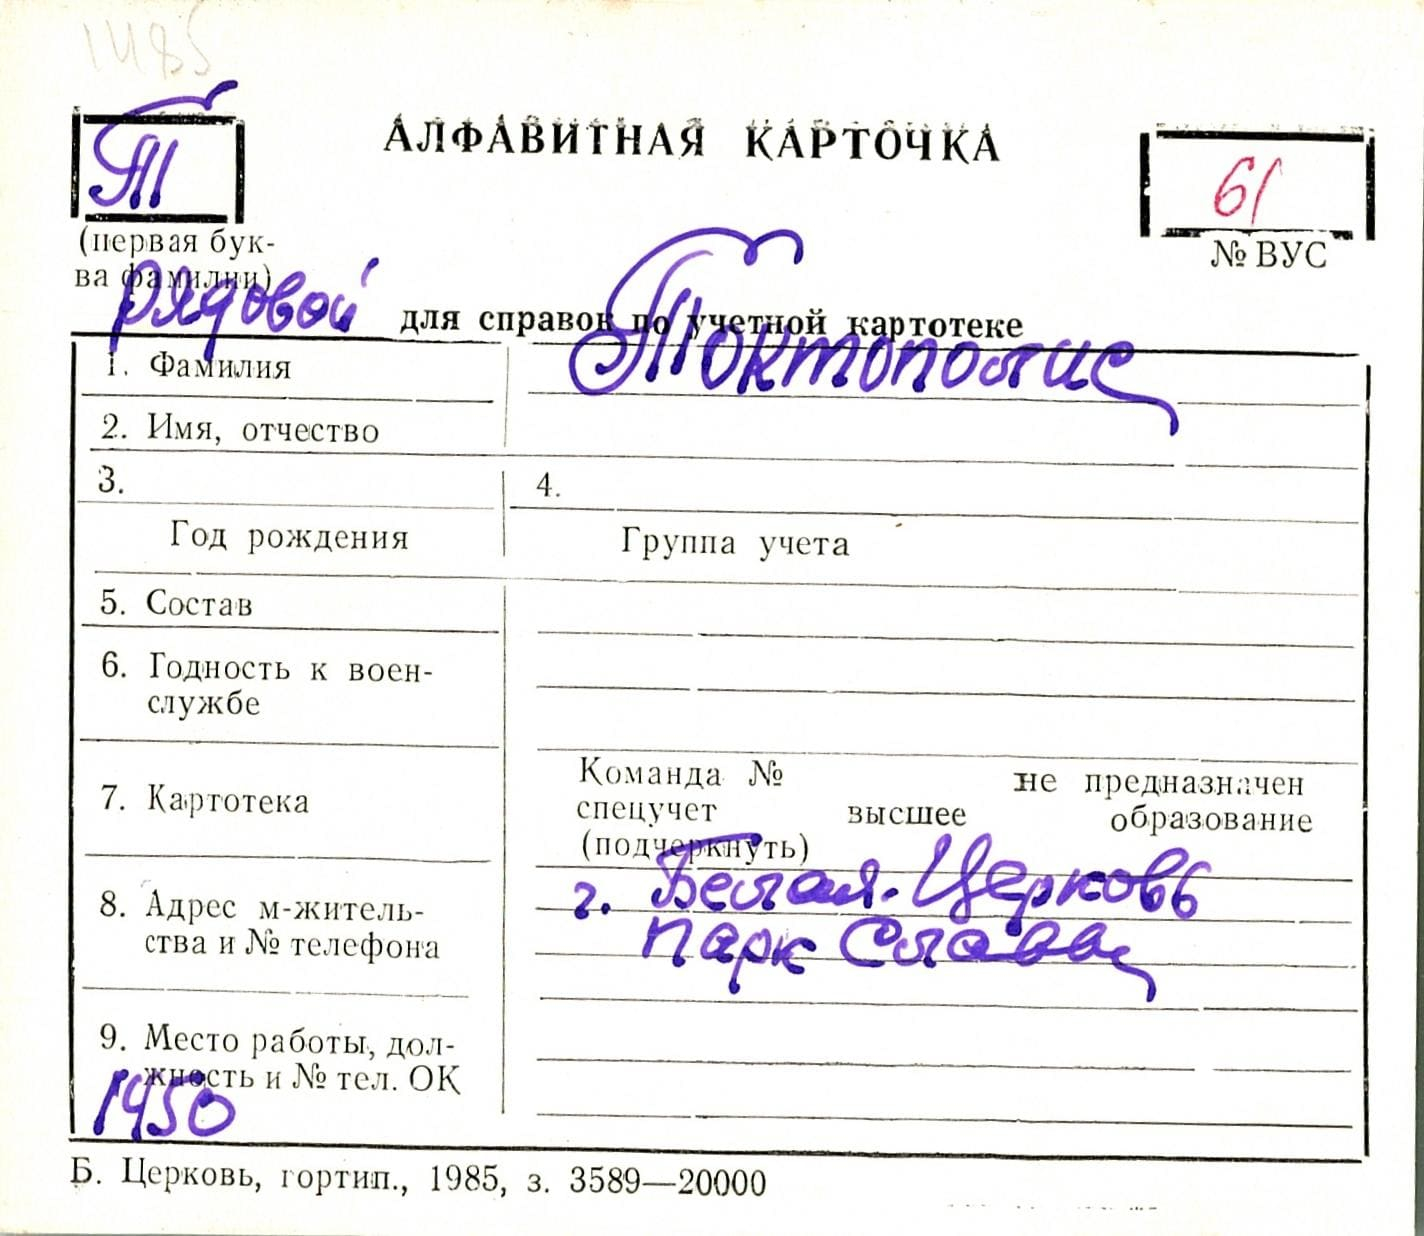 1485
Т
АЛФАВИТНАЯ КАРТОЧКА
61
(первая бук-
ва фамилии)
№ ВУС
рядовой
для справок по учетной картотеке
1. Фамилия
Токтополис
2. Имя, отчество
3.
4.
Год рождения
Группа учета
5. Состав
6. Годность к воен-
службе
7. Картотека
Команда № не предназначен
спецучет высшее образование
(подчеркнуть)
8. Адрес м-житель-
ства и № телефона
г. Белая-Церковь
парк Славы
9. Место работы, дол-
жность и № тел. ОК
1450
Б. Церковь, гортип., 1985, з. 3589—20000